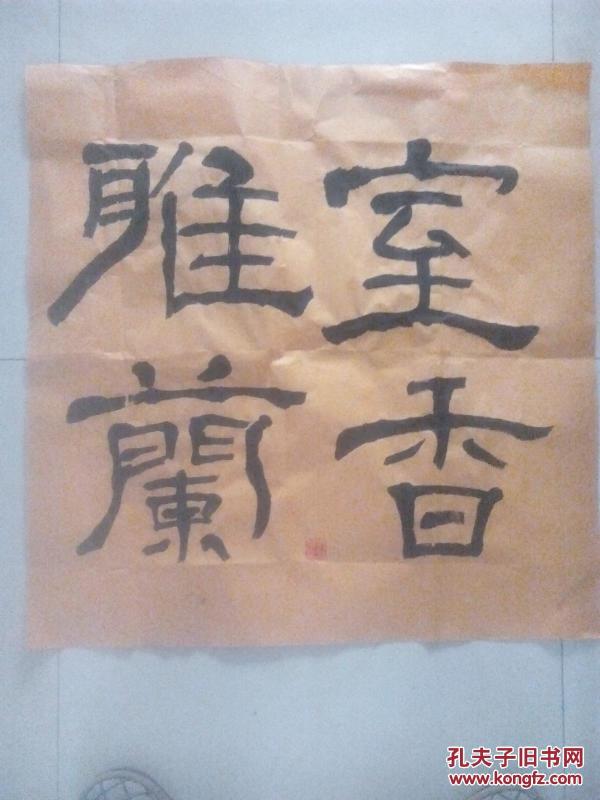 室香
雅蘭
孔夫子旧书网
www.kongfz.com